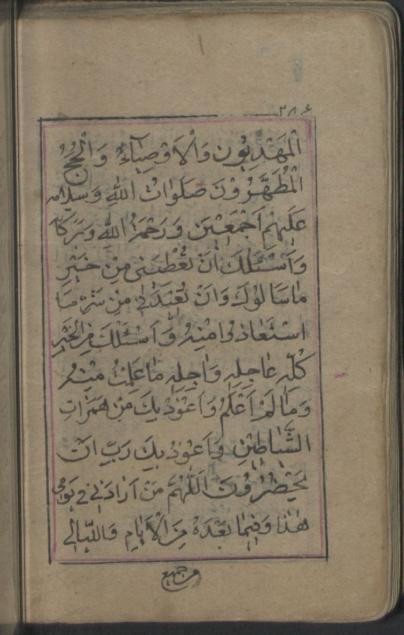 ٢٨٤
الْمَهْدِيُّونَ وَالْاَوْصِيَآءُ وَالْحُجَجُ
الْمُطَهَّرُونَ صَلَوَاتُ اللهِ وَسَلَامُهُ
عَلَيْهِمْ اَجْمَعِيْنَ وَرَحْمَةُ اللهِ وَبَرَكَا
وَاَسْئَلُكَ اَنْ تُعْطِيَنِى مِنْ خَيْرِ
مَا سَاَلُوكَ وَاَنْ تُعِيْذَنِى مِنْ شَرِّ مَا
اسْتَعَاذُوا مِنْهُ وَاَسْئَلُكَ مِنَ الْخَيْرِ
كُلِّهِ عَاجِلِهِ وَاٰجِلِهِ مَا عَلِمْتُ مِنْهُ
وَمَا لَمْ اَعْلَمْ وَاَعُوْذُ بِكَ مِنْ هَمَزَاتِ
الشَّيَاطِيْنِ وَاَعُوْذُ بِكَ رَبِّ اَنْ
يَحْضُرُوْنَ اَللّٰهُمَّ مَنْ اَرَادَنِى فِى يَوْمِى
هٰذَا وَفِيْمَا بَعْدَهُ مِنَ الْاَيَّامِ وَاللَّيَالِى
من جميع